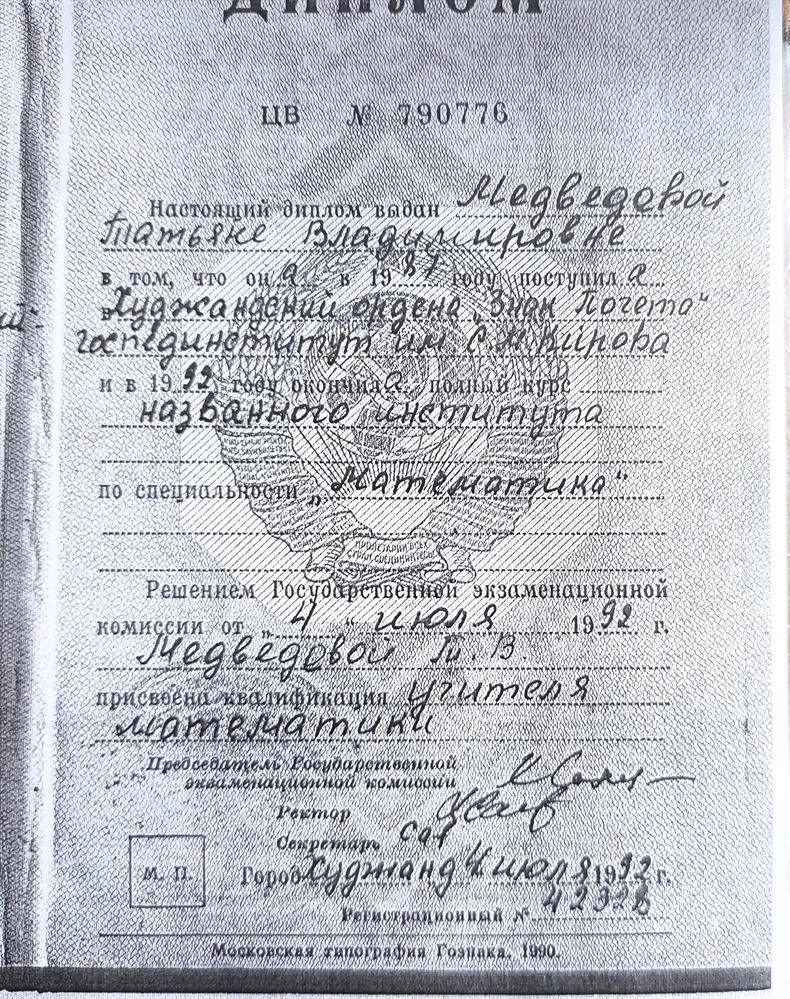 ДИПЛОМ
ЦВ № 790776
Настоящий диплом выдан Медведовой
Татьяне Владимировне
в том, что он а в 1987 году поступил а
в Худжандский ордена „Знак Почета“
госпединститут им С.М.Кирова
и в 1992 году окончил а полный курс
названного института
по специальности „Математика“
ПРОЛЕТАРИИ ВСЕХ
СТРАН, СОЕДИНЯЙТЕСЬ!
Решением Государственной экзаменационной
комиссии от „ 4 “ июля 1992 г.
Медведовой Т. В.
присвоена квалификация учителя
математики
Председатель Государственной
экзаменационной комиссии
Ректор
Секретарь
М. П.
Город Худжанд 4 июля 1992 г.
Регистрационный №
Московская типография Гознака. 1990.